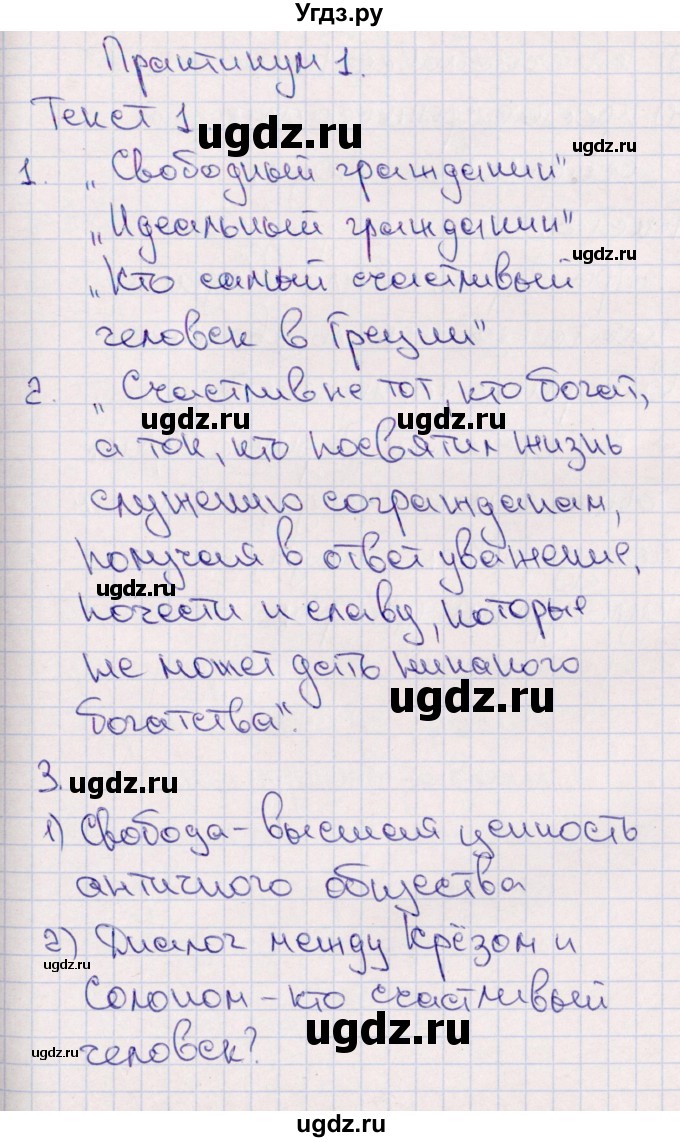 Угдз.ру
Практикум 1.
Текст 1
ugdz.ru
ugdz.ru
1. „Свободный гражданин".
„Идеальный гражданин"
ugdz.ru
„Кто самый счастливый
человек в Греции"
2. „Счастлив не тот, кто богат,
ugdz.ru
ugdz.ru
а ток, кто посвятил жизнь
служению согражданам,
получая в ответ уважение,
ugdz.ru
почести и славу, которые
не может дать никакого
ugdz.ru
богатства".
3.
ugdz.ru
1) Свобода - высшая ценность
античного общества
2) Диалог между Крёзом и
ugdz.ru
Солоном - кто счастливый
ugdz.ru
человек?
ugdz.ru
ugdz.ru